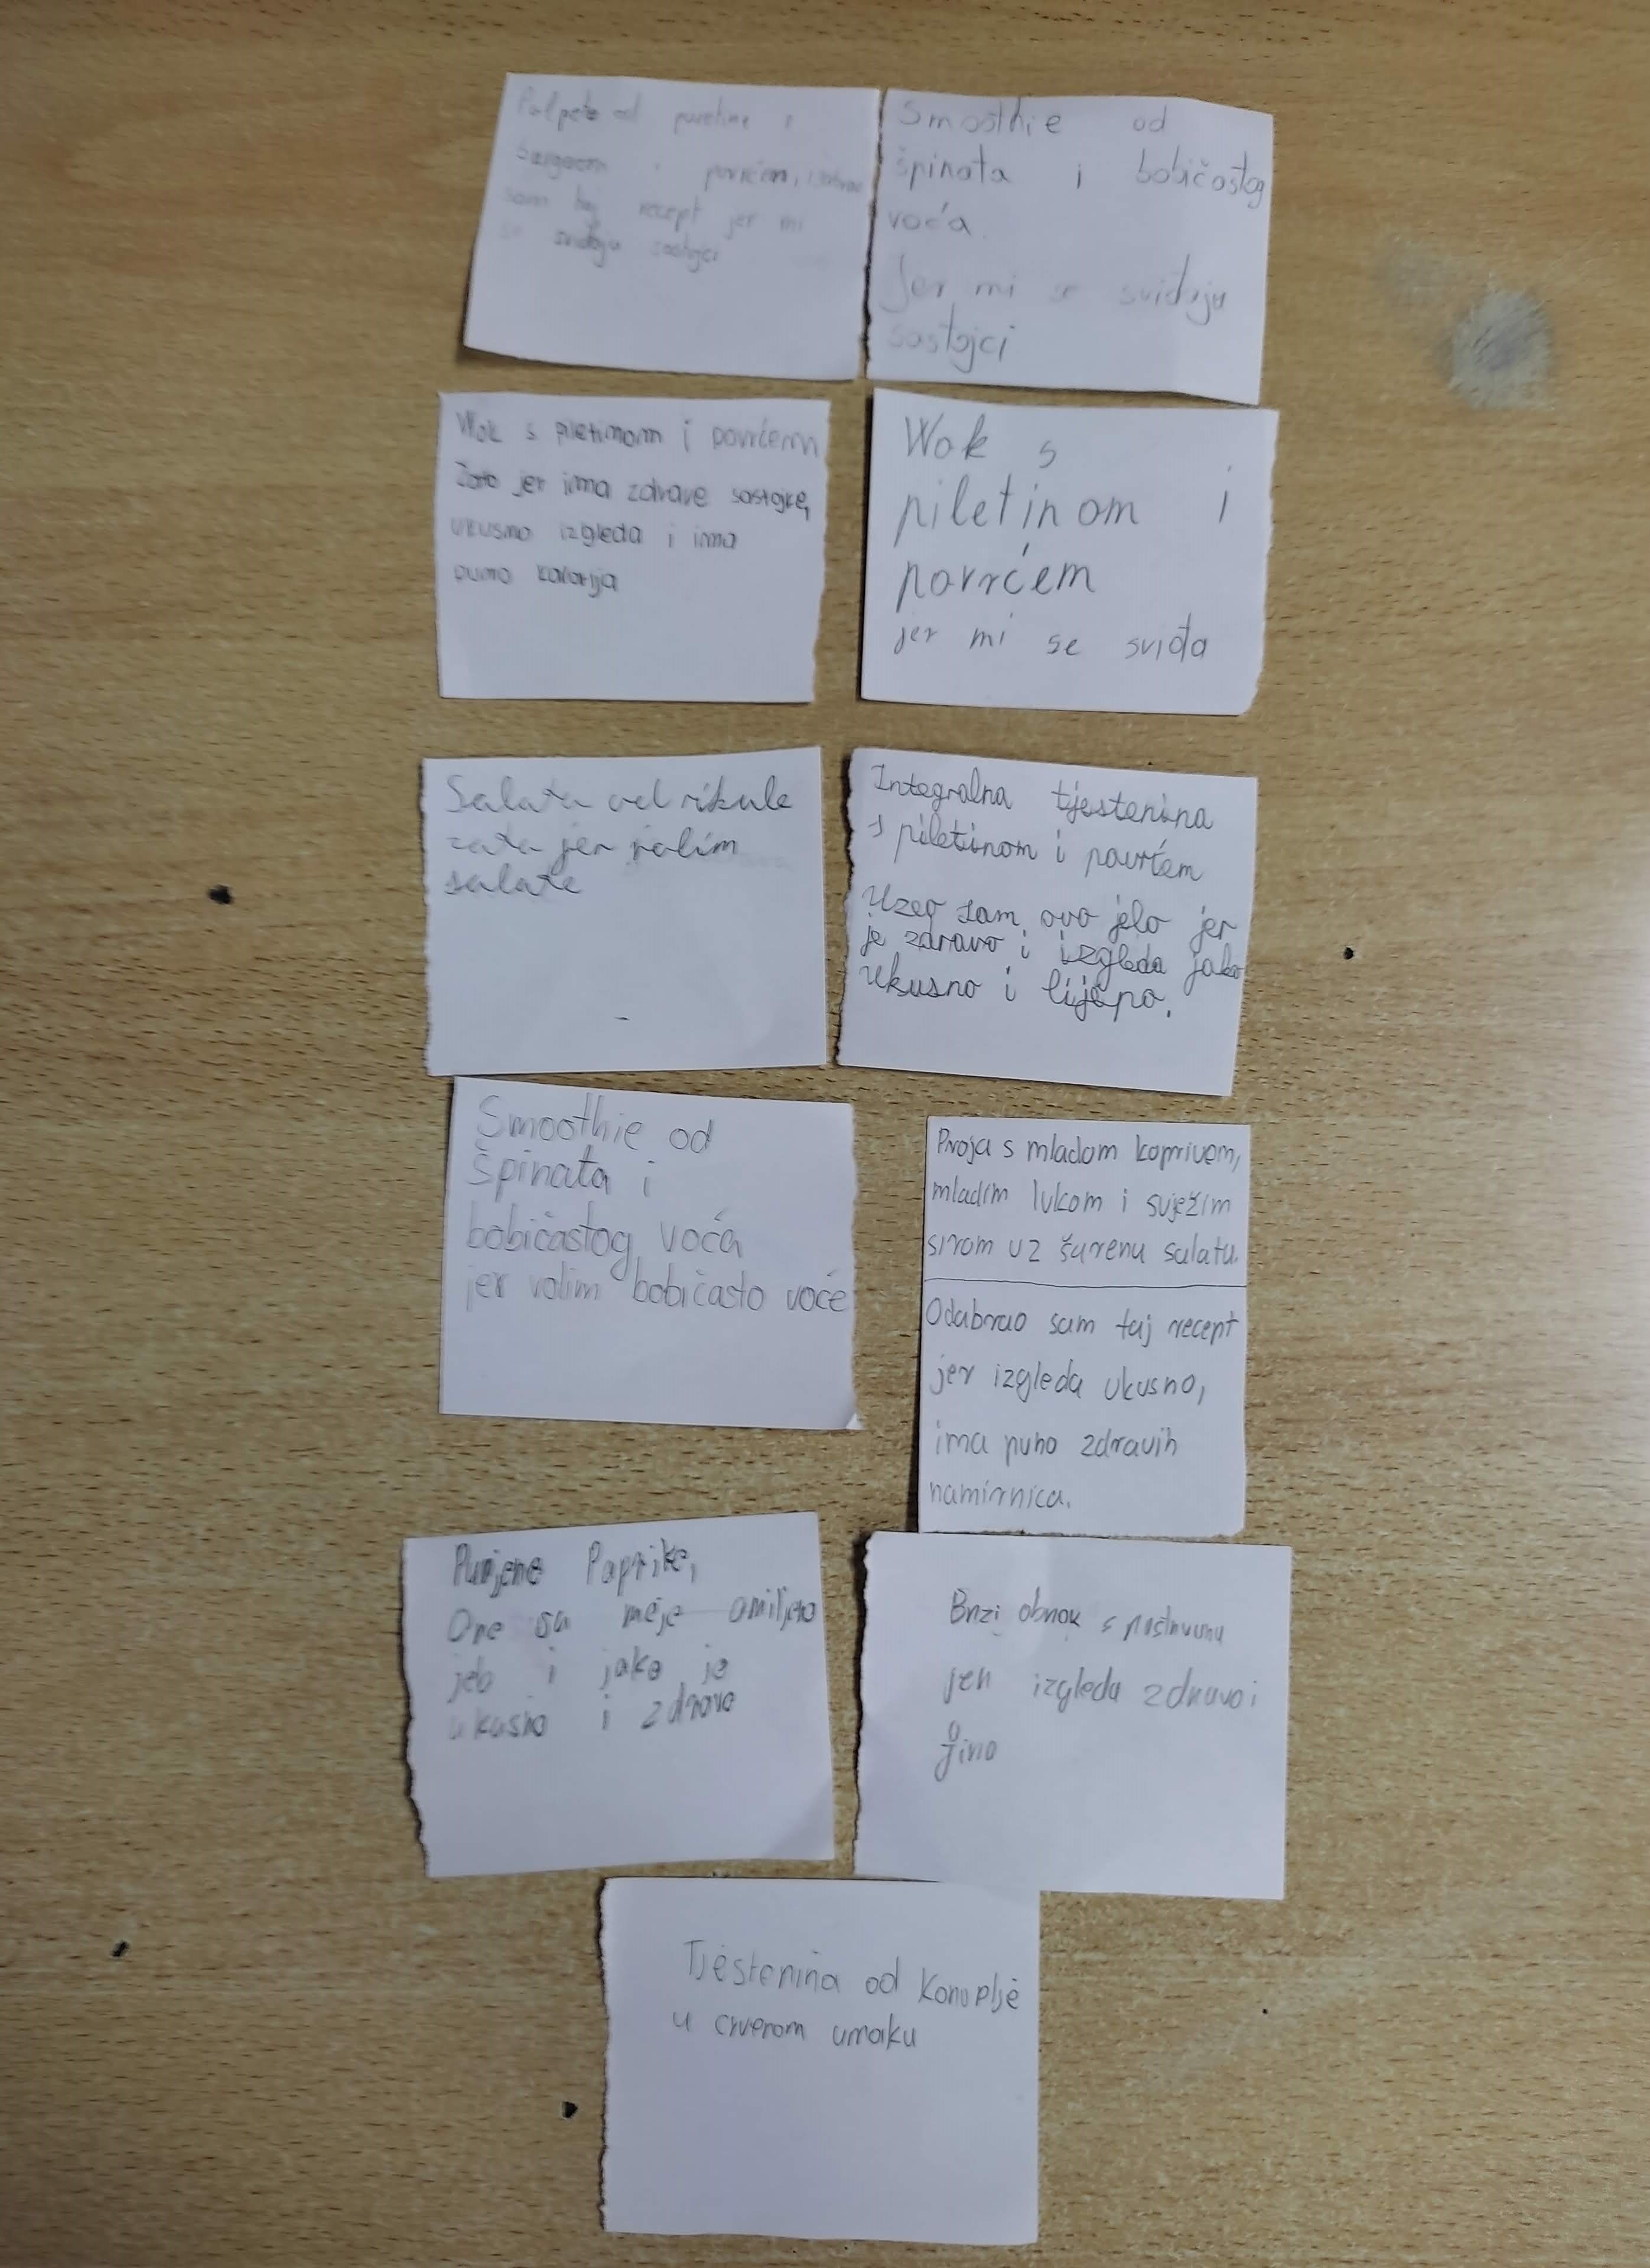 Polpete od puretine s
bulgurom i povrćem,
sam taj recept jer mi
se sviđaju sastojci
Smoothie od
špinata i bobičastog
voća.
Jer mi se sviđaju
sastojci
Wok s piletinom i povrćem
Zato jer ima zdrave sastojke,
ukusno izgleda i ima
puno kalorija
Wok s
piletinom i
povrćem
jer mi se sviđa
Salata od rikule
zata jer volim
salate
Integralna tjestenina
s piletinom i povrćem
Uzeo sam ovo jelo jer
je zdravo i izgleda jako
ukusno i lijepo.
Smoothie od
špinata i
bobičastog voća
jer volim bobičasto voće
Proja s mladom koprivom,
mladim lukom i svježim
sirom uz šarenu salatu.
Odabrao sam taj recept
jer izgleda ukusno,
ima puno zdravih
namirnica.
Punjene Paprike,
One su moje omiljeno
jelo i jako je
ukusno i zdravo
Brzi obrok s
jer izgleda zdravo i
fino
Tjestenina od Konoplje
u crvenom umaku